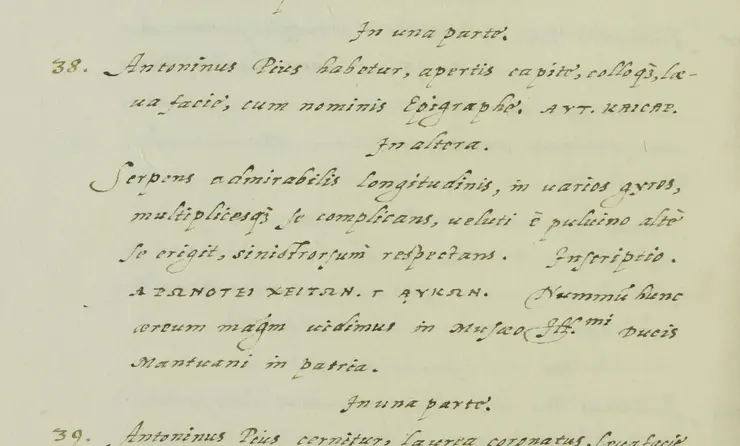 In una parte.
38. Antoninus Pius habetur, apertis capite, colloq3, læ-
ua facie, cum nominis Epigraphe. ΑΥΤ. ΚΑΙСΑΡ.
In altera.
Serpens admirabilis longitudinis, in varios gyros,
multiplicesq3 se complicans, ueluti è puluino altè
se erigit, sinistrorsum respectans. Inscriptio.
ΑΡΩΝΟΤΕΙ ΧΕΙΤΩΝ. Γ ΛΥΚΩΝ. Nummū hunc
æreum mag̃m uidimus in Musæo Ill.mi Ducis
Mantuani in patria.
In una parte.
39. Antoninus Pius cernitur, laurea coronatus, leua facie